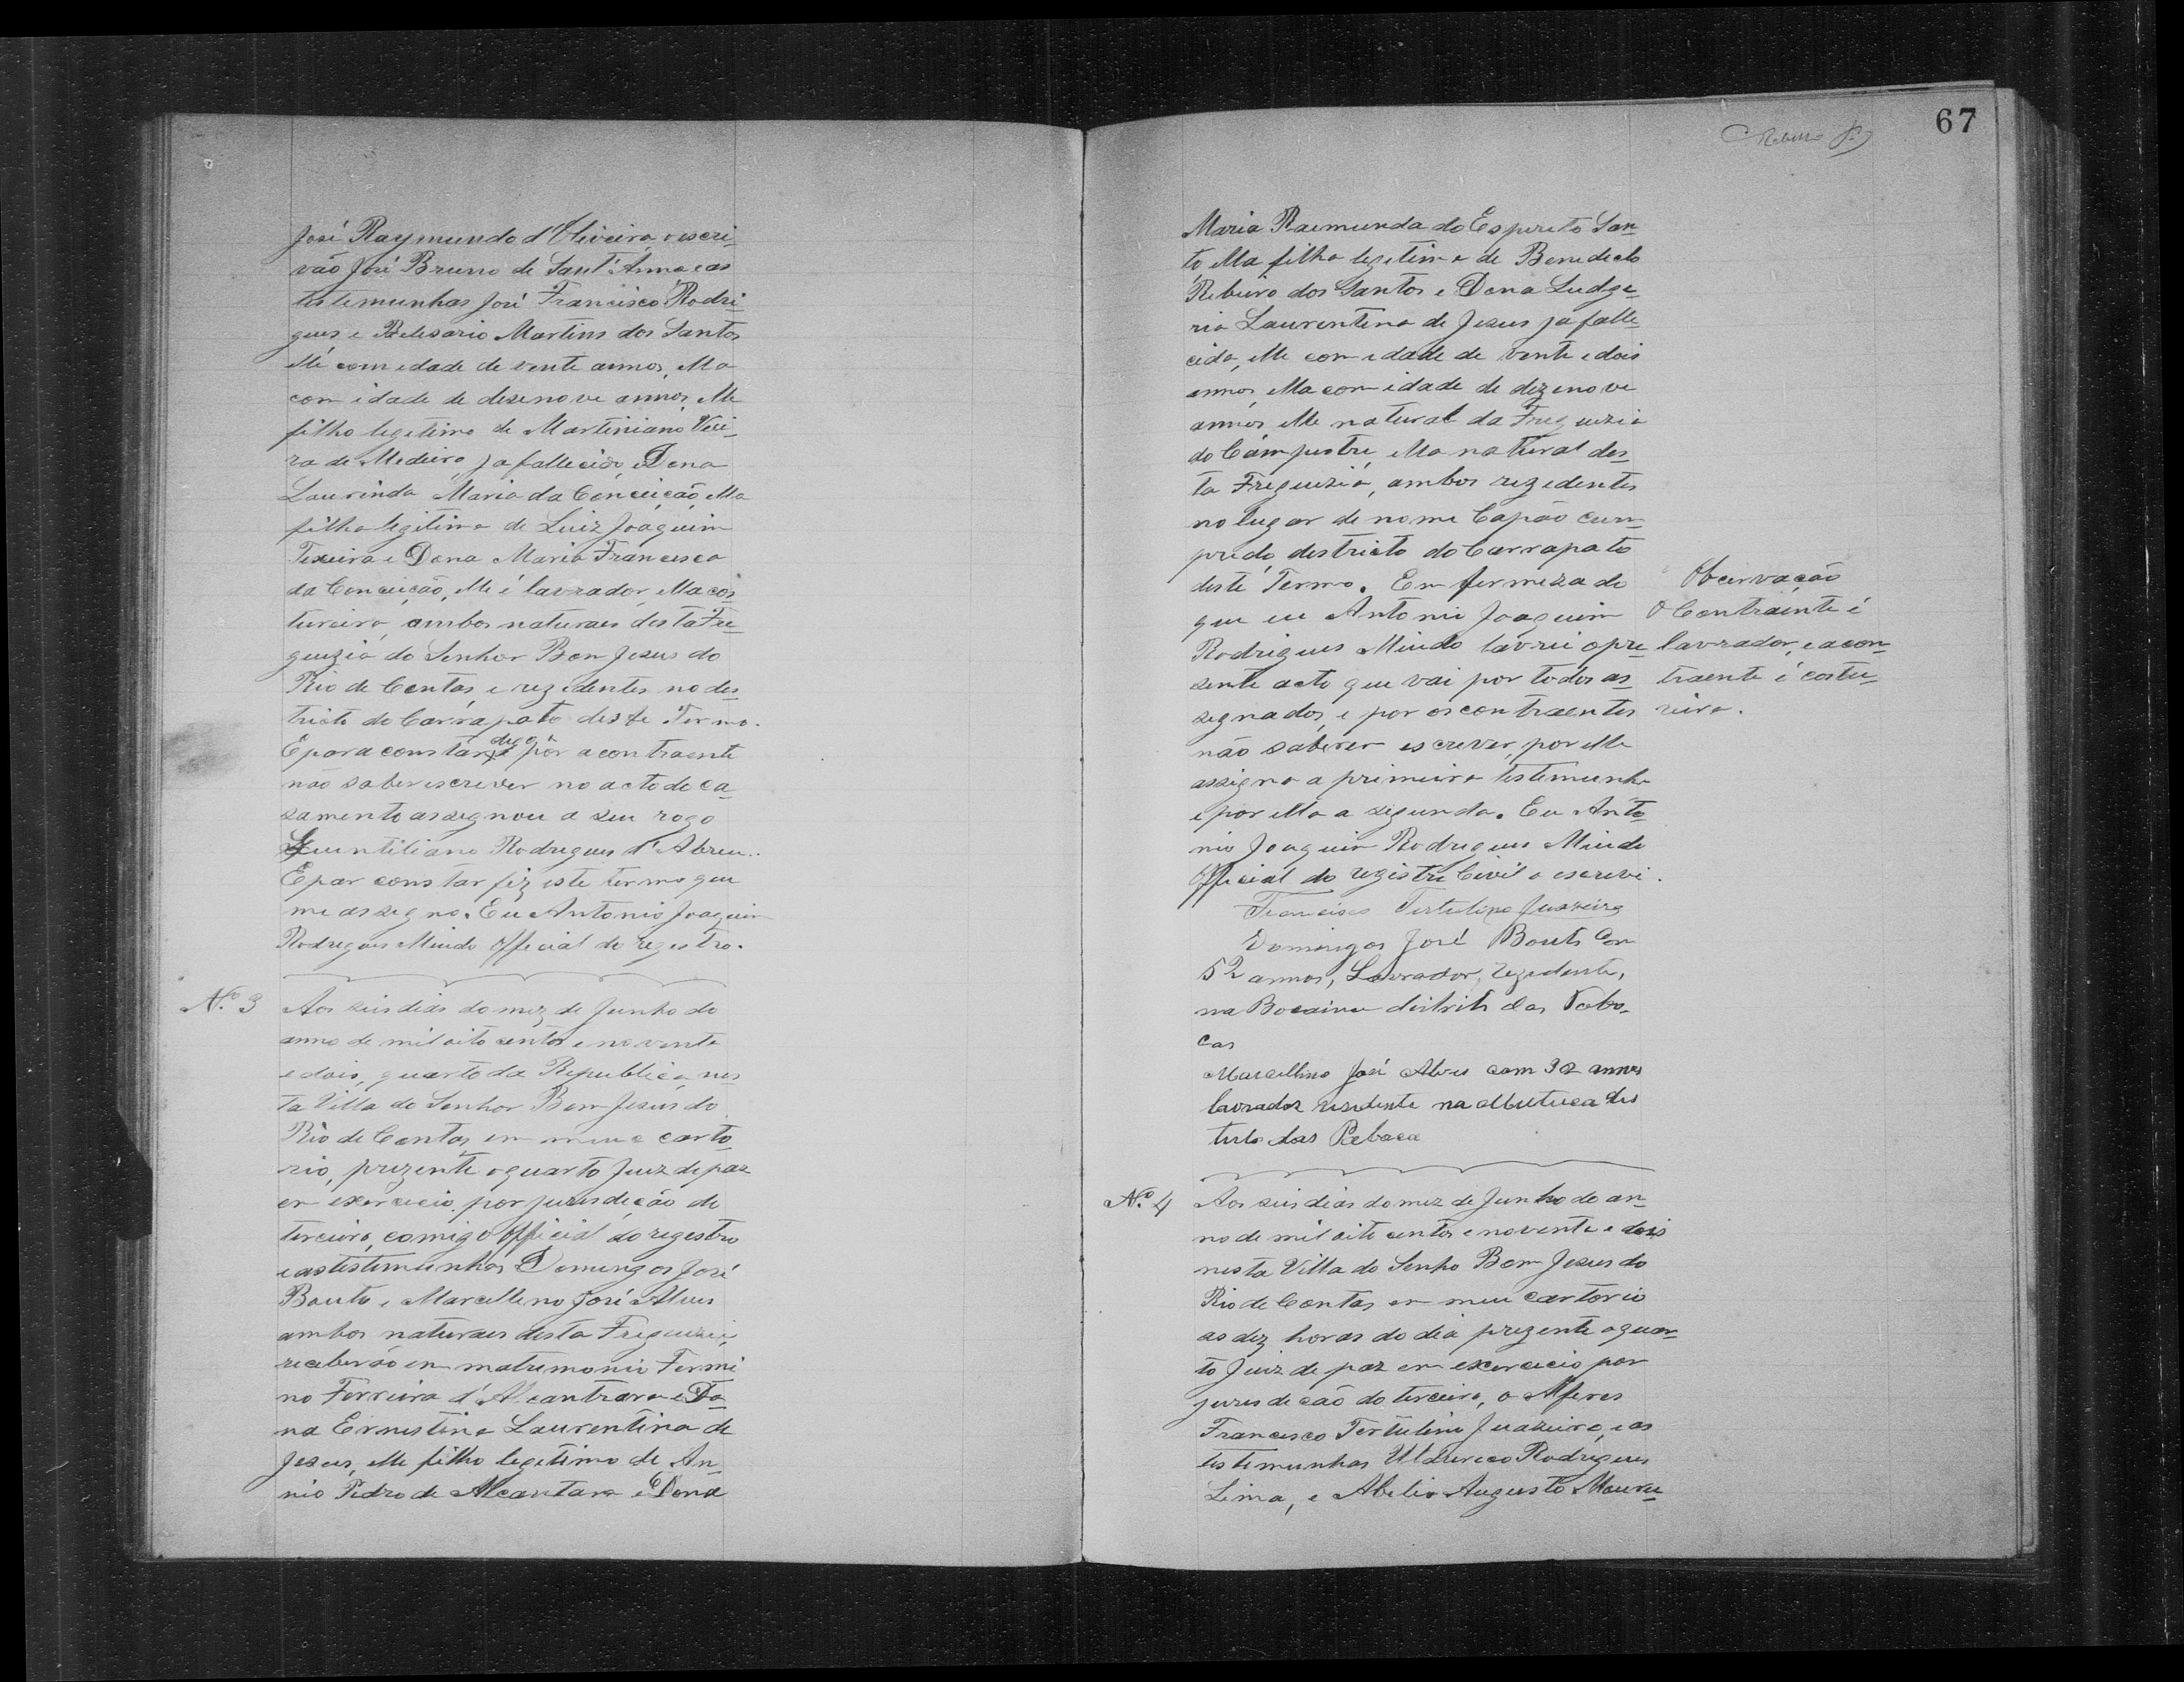 José Raymundo d'Oliveira, o escri-
vão José Bruno de Sant'Anna e as
testemunhas José Francisco Rodri-
gues e Belesario Martins dos Santos
elle com edade de vente annos, ella
com idade de desenove annos, elle
filho legetimo de Martiniano Viei-
ra de Medeiro, ja fallecido, e Dona
Laurinda Maria da Conceição, ella
filha legitima de Luiz Joaquim
Texeira e Dona Maria Francisca
da Conceição, elle é lavrador, ella cos-
tureira, ambos naturaes desta Fre-
guezia do Senhor Bom Jesus do
Rio de Contas, e rezedentes no des-
tricto do Carrapato deste Termo.
E para constar digo por a contraente
não saber escrever no acto do ca-
zamento assegnou a seu rogo
Quintiliano Rodrigues d'Abreu..
E par constar fiz este termo que
me assegno. Eu Antonio Joaquim
Rodrigues Mindo Official do registro.
N.º 3 Aos seis dias do mez de Junho do
anno de mil oito centos e noventa
e dois, quarto da Republica, nes-
ta Villa do Senhor Bom Jesus do
Rio de Contas, em meu carto-
rio, prezente o quarto Juiz de paz
em exercicio, por jurisdeção do
terceiro, comigo Official do regestro
e as testemunhas Domingos José
Bouto e Marcelleno José Alves
ambos naturaes desta Freguezia
receberão em matrimonio Fermi-
no Ferreira d'Alcantara e Do-
na Ernestina Laurentina de
Jesus, elle filho legetimo de An-
nio Pedro de Alcantara e Dona
67
Maria Raemunda do Esperito San-
to ella filha legetima de Benedicto
Ribeiro dos Santos e Dona Ludge-
ria Laurentina de Jesus ja falle-
cida, elle com edade de vente e dois
annos, ella com idade de dezenove
annos, elle natural da Freguezia
do Campestre, ella natural des-
ta Freguezia, ambos rezedentes
no lugar de nome Capão cum-
prido, destricto do Carrapato
deste Termo. Em fermeza do
que eu Antonio Joaquim
Rodrigues Mindo lavrei o pre-
zente acto que vai por todos as-
segnados, e por os contraentes
não saberem escrever, por elle
assigna a primeira testemunha
e por ella a segunda. Eu Anto-
nio Joaquim Rodrigues Mindo
Official do registro Civil o escrevi.
Obcervação
O Contraente é
lavrador, e a con-
traente é costu-
reira.
Francisco Tertulino Juazeiro
Domingos José Bouto Com
52 annos, Lavrador, rezedente,
na Bocaina distrito das
Marcellino José Alves com 32 annos
lavrador residente na
das
N.º 4 Aos seis dias do mez de Junho do an-
no de mil oito centos e noventa e dois
nesta Villa do Senho Bom Jesus do
Rio de Contas em meu cartorio
as dez horas do dia prezente o quar-
to Juiz de paz em excercicio por
juresdecão do terceiro, o Alferes
Francisco Tertulino Juazeiro, e as
testemunhas Rodrigues
Lima, e Abelio Augusto Moura